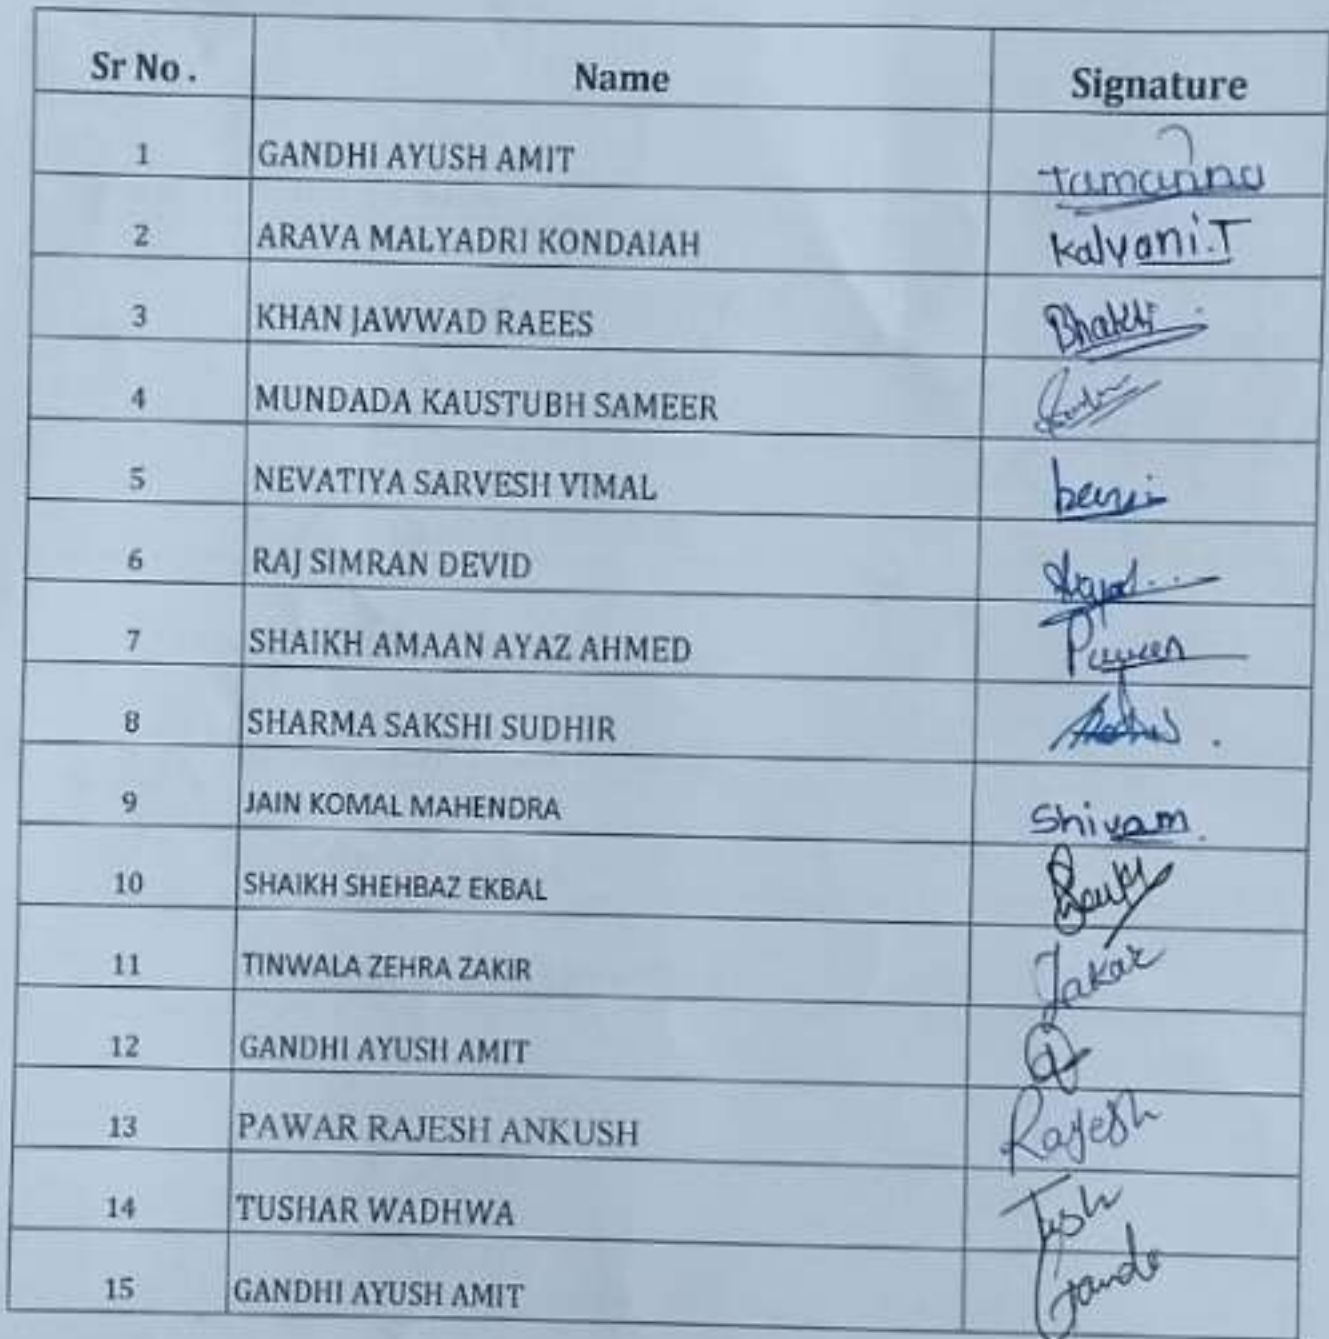 Sr No. Name Signature
1 GANDHI AYUSH AMIT Tamanna
2 ARAVA MALYADRI KONDAIAH Kalyani.T
3 KHAN JAWWAD RAEES Bhakti
4 MUNDADA KAUSTUBH SAMEER
5 NEVATIYA SARVESH VIMAL
6 RAJ SIMRAN DEVID
7 SHAIKH AMAAN AYAZ AHMED
8 SHARMA SAKSHI SUDHIR
9 JAIN KOMAL MAHENDRA Shivam.
10 SHAIKH SHEHBAZ EKBAL
11 TINWALA ZEHRA ZAKIR
12 GANDHI AYUSH AMIT
13 PAWAR RAJESH ANKUSH Rajesh
14 TUSHAR WADHWA Tush
15 GANDHI AYUSH AMIT